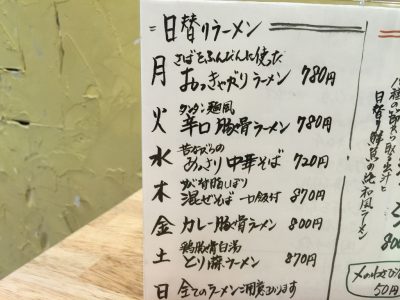 日替りラーメン
月 さばをふんだんに使った
おっきゃがりラーメン 780円
火 タンタン麺風
辛口豚骨ラーメン 780円
水 昔ながらの
あっさり中華そば 720円
木 背脂しぼり
混ぜそば 一口飯付 870円
金 カレー豚骨ラーメン 800円
土 鶏豚骨白湯
とり豚ラーメン 870円
日 全てのラーメンご用意あります
日替り鮮魚の純和風ラーメン
50円